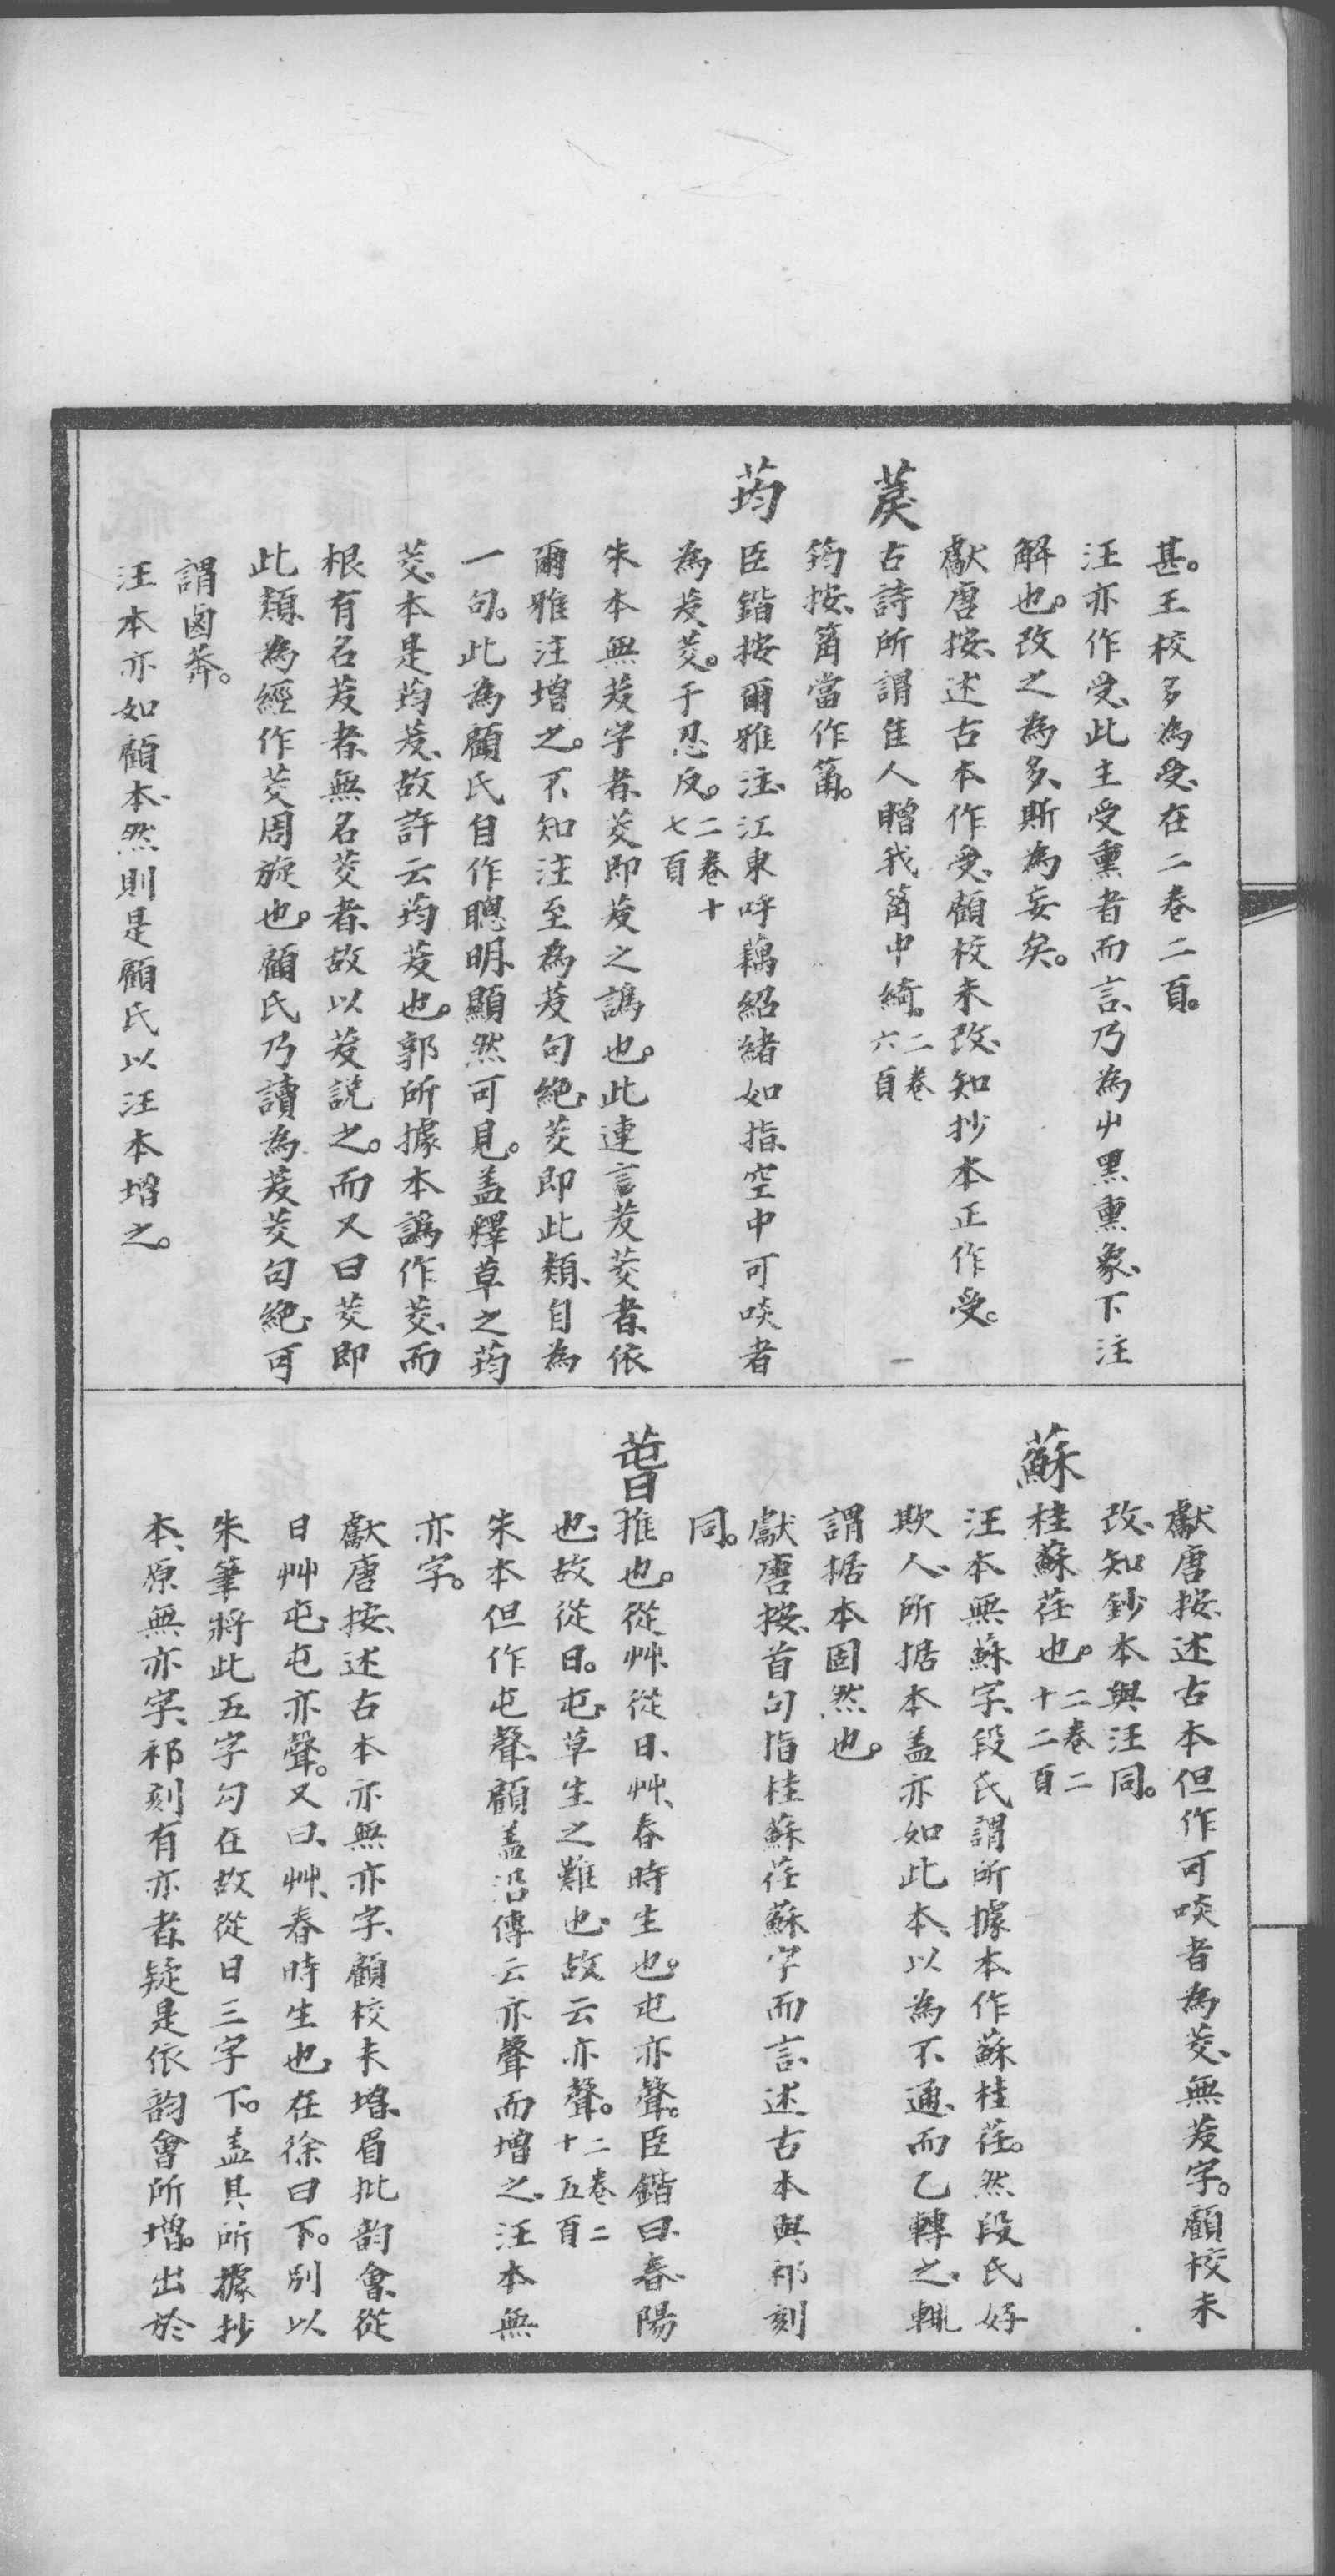 甚。王校多為受、在二卷二頁。
汪亦作受、此主受熏者而言、乃為屮黑熏象、下注
解也。改之為多、斯為妄矣。
獻唐按、述古本作受、顧校未改、知抄本正作受。
萇
古詩所謂隹人贈我筩中綺。二卷六頁
筠按、筩當作筩。
荺
臣鍇按爾雅注、江東呼藕紹緒如指、空中可啖者
為茇茭。于忍反。二卷十七頁
朱本無茇字者、茭即茇之譌也。此連言茇茭者、依
爾雅注增之。不知注至為茇句絕、茭即此類、自為
一句。此為顧氏自作聰明、顯然可見。盖釋草之荺
茭、本是荺茇、故許云荺茇也。郭所據本譌作茭、而
根有名茇者、無名茭者、故以茇説之。而又曰茭即
此類、為經作茭周旋也。顧氏乃讀為茇茭句絕、可
謂鹵莽。
汪本亦如顧本、然則是顧氏以汪本增之。
獻唐按、述古本但作可啖者為茭、無茇字。顧校未
改、知鈔本與汪同。
蘇
桂蘇荏也。二卷二十二頁
汪本無蘇字、段氏謂所據本作蘇桂荏。然段氏好
欺人、所据本盖亦如此本、以為不通、而乙轉之、輒
謂据本固然也。
獻唐按、首句指桂蘇荏蘇字而言、述古本與祁刻
同。
萅
推也。從艸從日、艸、春時生也。屯亦聲。臣鍇曰、春、陽
也、故從日。屯、草生之難也、故云亦聲。二卷二十五頁
朱本但作屯聲、顧盖沿傳云亦聲而增之、汪本無
亦字。
獻唐按、述古本亦無亦字、顧校未增、眉批韵會、從
日艸屯、屯亦聲。又曰、艸、春時生也、在徐曰下。别以
朱筆將此五字勾在故從日三字下。盖其所據抄
本、原無亦字、祁刻有亦者、疑是依韵會所增。出於